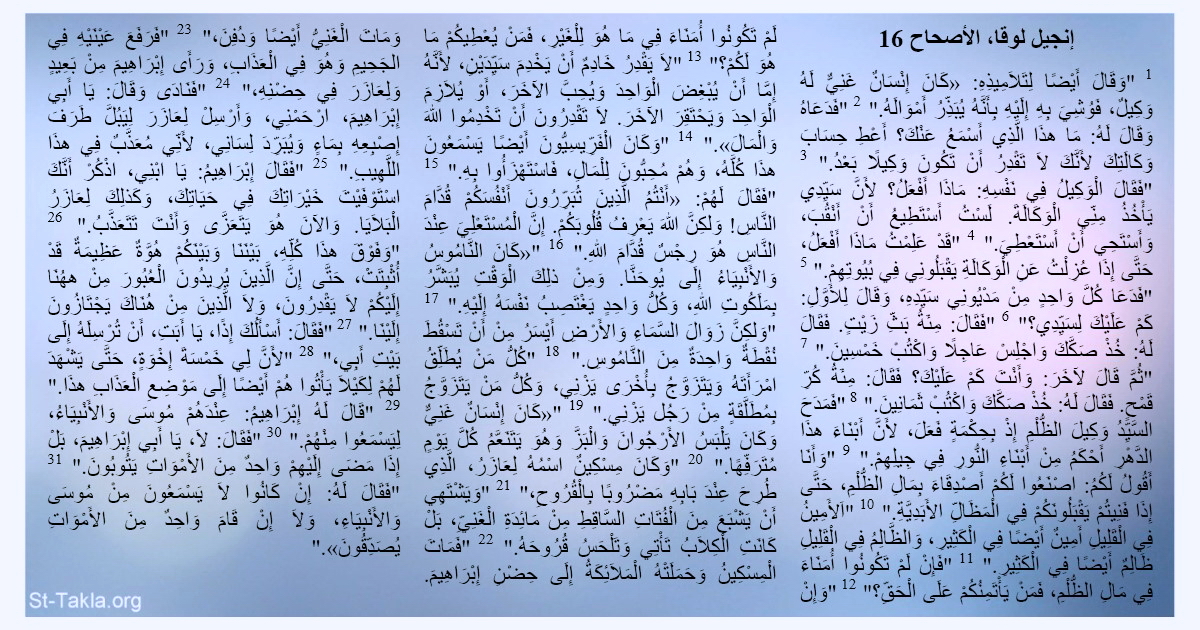 إنجيل لوقا، الأصحاح 16
1 "وَقَالَ أَيْضًا لِتَلاَمِيذِهِ: «كَانَ إِنْسَانٌ غَنِيٌّ لَهُ
وَكِيلٌ، فَوُشِيَ بِهِ إِلَيْهِ بِأَنَّهُ يُبَذِّرُ أَمْوَالَهُ." 2 "فَدَعَاهُ
وَقَالَ لَهُ: مَا هذَا الَّذِي أَسْمَعُ عَنْكَ؟ أَعْطِ حِسَابَ
وَكَالَتِكَ لأَنَّكَ لاَ تَقْدِرُ أَنْ تَكُونَ وَكِيلًا بَعْدُ." 3
"فَقَالَ الْوَكِيلُ فِي نَفْسِهِ: مَاذَا أَفْعَلُ؟ لأَنَّ سَيِّدِي
يَأْخُذُ مِنِّي الْوَكَالَةَ. لَسْتُ أَسْتَطِيعُ أَنْ أَنْقُبَ،
وَأَسْتَحِي أَنْ أَسْتَعْطِيَ." 4 "قَدْ عَلِمْتُ مَاذَا أَفْعَلُ،
حَتَّى إِذَا عُزِلْتُ عَنِ الْوَكَالَةِ يَقْبَلُونِي فِي بُيُوتِهِمْ." 5
"فَدَعَا كُلَّ وَاحِدٍ مِنْ مَدْيُونِي سَيِّدِهِ، وَقَالَ لِلأَوَّلِ:
كَمْ عَلَيْكَ لِسَيِّدِي؟" 6 "فَقَالَ: مِئَةُ بَثِّ زَيْتٍ. فَقَالَ
لَهُ: خُذْ صَكَّكَ وَاجْلِسْ عَاجِلًا وَاكْتُبْ خَمْسِينَ." 7
"ثُمَّ قَالَ لآخَرَ: وَأَنْتَ كَمْ عَلَيْكَ؟ فَقَالَ: مِئَةُ كُرِّ
قَمْحٍ. فَقَالَ لَهُ: خُذْ صَكَّكَ وَاكْتُبْ ثَمَانِينَ." 8 "فَمَدَحَ
السَّيِّدُ وَكِيلَ الظُّلْمِ إِذْ بِحِكْمَةٍ فَعَلَ، لأَنَّ أَبْنَاءَ هذَا
الدَّهْرِ أَحْكَمُ مِنْ أَبْنَاءِ النُّورِ فِي جِيلِهِمْ." 9 "وَأَنَا
أَقُولُ لَكُمُ: اصْنَعُوا لَكُمْ أَصْدِقَاءَ بِمَالِ الظُّلْمِ، حَتَّى
إِذَا فَنِيتُمْ يَقْبَلُونَكُمْ فِي الْمَظَالِّ الأَبَدِيَّةِ." 10 "اَلأَمِينُ
فِي الْقَلِيلِ أَمِينٌ أَيْضًا فِي الْكَثِيرِ، وَالظَّالِمُ فِي الْقَلِيلِ
ظَالِمٌ أَيْضًا فِي الْكَثِيرِ." 11 "فَإِنْ لَمْ تَكُونُوا أُمَنَاءَ
فِي مَالِ الظُّلْمِ، فَمَنْ يَأْتَمِنُكُمْ عَلَى الْحَقِّ؟" 12 "وَإِنْ
لَمْ تَكُونُوا أُمَنَاءَ فِي مَا هُوَ لِلْغَيْرِ، فَمَنْ يُعْطِيكُمْ مَا
هُوَ لَكُمْ؟" 13 "لاَ يَقْدِرُ خَادِمٌ أَنْ يَخْدِمَ سَيِّدَيْنِ، لأَنَّهُ
إِمَّا أَنْ يُبْغِضَ الْوَاحِدَ وَيُحِبَّ الآخَرَ، أَوْ يُلاَزِمَ
الْوَاحِدَ وَيَحْتَقِرَ الآخَرَ. لاَ تَقْدِرُونَ أَنْ تَخْدِمُوا اللهَ
وَالْمَالَ»." 14 "وَكَانَ الْفَرِّيسِيُّونَ أَيْضًا يَسْمَعُونَ
هذَا كُلَّهُ، وَهُمْ مُحِبُّونَ لِلْمَالِ، فَاسْتَهْزَأُوا بِهِ." 15
"فَقَالَ لَهُمْ: «أَنْتُمُ الَّذِينَ تُبَرِّرُونَ أَنْفُسَكُمْ قُدَّامَ
النَّاسِ! وَلكِنَّ اللهَ يَعْرِفُ قُلُوبَكُمْ. إِنَّ الْمُسْتَعْلِيَ عِنْدَ
النَّاسِ هُوَ رِجْسٌ قُدَّامَ اللهِ." 16 "«كَانَ النَّامُوسُ
وَالأَنْبِيَاءُ إِلَى يُوحَنَّا. وَمِنْ ذلِكَ الْوَقْتِ يُبَشَّرُ
بِمَلَكُوتِ اللهِ، وَكُلُّ وَاحِدٍ يَغْتَصِبُ نَفْسَهُ إِلَيْهِ." 17
"وَلكِنَّ زَوَالَ السَّمَاءِ وَالأَرْضِ أَيْسَرُ مِنْ أَنْ تَسْقُطَ
نُقْطَةٌ وَاحِدَةٌ مِنَ النَّامُوسِ." 18 "كُلُّ مَنْ يُطَلِّقُ
امْرَأَتَهُ وَيَتَزَوَّجُ بِأُخْرَى يَزْنِي، وَكُلُّ مَنْ يَتَزَوَّجُ
بِمُطَلَّقَةٍ مِنْ رَجُل يَزْنِي." 19 "«كَانَ إِنْسَانٌ غَنِيٌّ
وَكَانَ يَلْبَسُ الأَرْجُوانَ وَالْبَزَّ وَهُوَ يَتَنَعَّمُ كُلَّ يَوْمٍ
مُتَرَفِّهًا." 20 "وَكَانَ مِسْكِينٌ اسْمُهُ لِعَازَرُ، الَّذِي
طُرِحَ عِنْدَ بَابِهِ مَضْرُوبًا بِالْقُرُوحِ،" 21 "وَيَشْتَهِي
أَنْ يَشْبَعَ مِنَ الْفُتَاتِ السَّاقِطِ مِنْ مَائِدَةِ الْغَنِيِّ، بَلْ
كَانَتِ الْكِلاَبُ تَأْتِي وَتَلْحَسُ قُرُوحَهُ." 22 "فَمَاتَ
الْمِسْكِينُ وَحَمَلَتْهُ الْمَلاَئِكَةُ إِلَى حِضْنِ إِبْرَاهِيمَ.
وَمَاتَ الْغَنِيُّ أَيْضًا وَدُفِنَ،" 23 "فَرَفَعَ عَيْنَيْهِ فِي
الجَحِيمِ وَهُوَ فِي الْعَذَابِ، وَرَأَى إِبْرَاهِيمَ مِنْ بَعِيدٍ
وَلِعَازَرَ فِي حِضْنِهِ،" 24 "فَنَادَى وَقَالَ: يَا أَبِي
إِبْرَاهِيمَ، ارْحَمْنِي، وَأَرْسِلْ لِعَازَرَ لِيَبُلَّ طَرَفَ
إِصْبِعِهِ بِمَاءٍ وَيُبَرِّدَ لِسَانِي، لأَنِّي مُعَذَّبٌ فِي هذَا
اللَّهِيبِ." 25 "فَقَالَ إِبْرَاهِيمُ: يَا ابْنِي، اذْكُرْ أَنَّكَ
اسْتَوْفَيْتَ خَيْرَاتِكَ فِي حَيَاتِكَ، وَكَذلِكَ لِعَازَرُ
الْبَلاَيَا. وَالآنَ هُوَ يَتَعَزَّى وَأَنْتَ تَتَعَذَّبُ." 26
"وَفَوْقَ هذَا كُلِّهِ، بَيْنَنَا وَبَيْنَكُمْ هُوَّةٌ عَظِيمَةٌ قَدْ
أُثْبِتَتْ، حَتَّى إِنَّ الَّذِينَ يُرِيدُونَ الْعُبُورَ مِنْ ههُنَا
إِلَيْكُمْ لاَ يَقْدِرُونَ، وَلاَ الَّذِينَ مِنْ هُنَاكَ يَجْتَازُونَ
إِلَيْنَا." 27 "فَقَالَ: أَسْأَلُكَ إِذًا، يَا أَبَتِ، أَنْ تُرْسِلَهُ إِلَى
بَيْتِ أَبِي،" 28 "لأَنَّ لِي خَمْسَةَ إِخْوَةٍ، حَتَّى يَشْهَدَ
لَهُمْ لِكَيْلاَ يَأْتُوا هُمْ أَيْضًا إِلَى مَوْضِعِ الْعَذَابِ هذَا."
29 "قَالَ لَهُ إِبْرَاهِيمُ: عِنْدَهُمْ مُوسَى وَالأَنْبِيَاءُ،
لِيَسْمَعُوا مِنْهُمْ." 30 "فَقَالَ: لاَ، يَا أَبِي إِبْرَاهِيمَ، بَلْ
إِذَا مَضَى إِلَيْهِمْ وَاحِدٌ مِنَ الأَمْوَاتِ يَتُوبُونَ." 31
"فَقَالَ لَهُ: إِنْ كَانُوا لاَ يَسْمَعُونَ مِنْ مُوسَى
وَالأَنْبِيَاءِ، وَلاَ إِنْ قَامَ وَاحِدٌ مِنَ الأَمْوَاتِ
يُصَدِّقُونَ»."
St-Takla.org